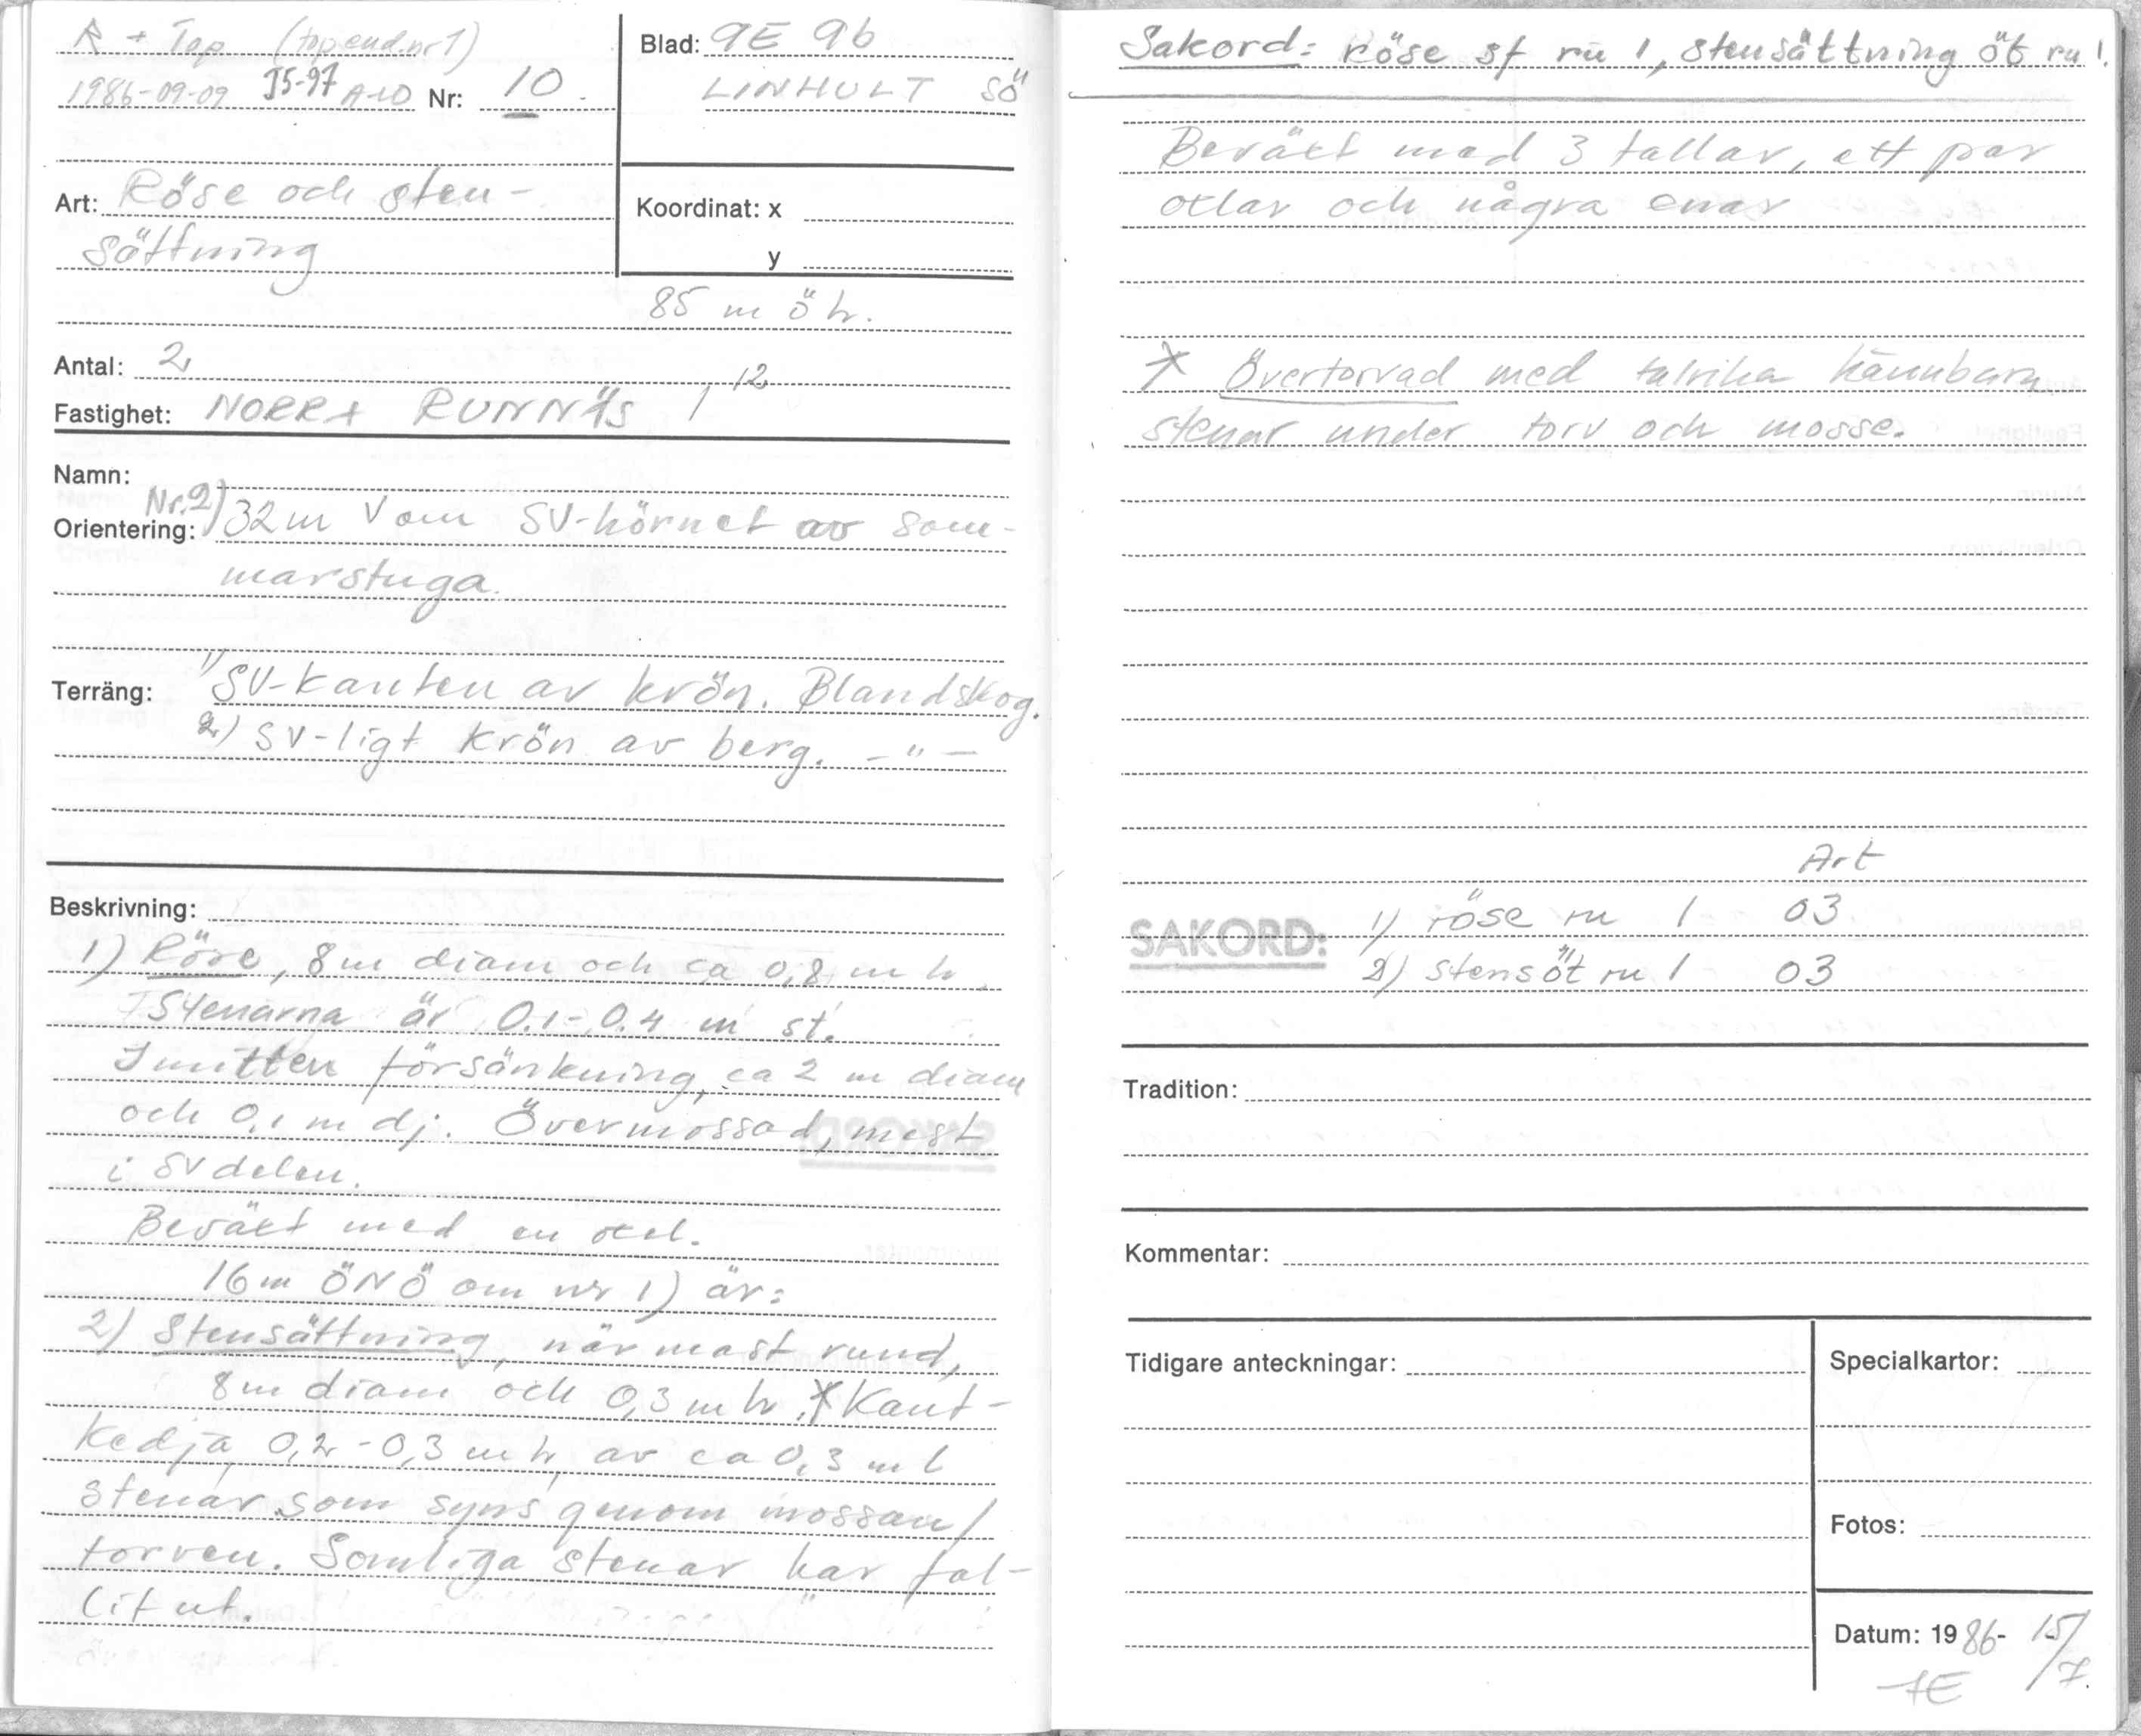 R + Top (top end. nr 1)
1986-09-09 J5-97 A-LO Nr: 10
Blad: 9E 9b
LINHULT SÖ
Art: Röse och sten-
sättning
Koordinat: x
y
85 m ö h.
Antal: 2
Fastighet: NORRA RUNNÄS 1/12
Namn:
Orientering: Nr. 2) 32 m V om SV-hörnet av som-
marstuga.
Terräng: 1) SV-kanten av krön. Blandskog.
2) SV-ligt krön av berg. -"-
Beskrivning:
1) Röse, 8 m diam och ca 0,8 m h
Stenarna är 0.1-0.4 m st.
I mitten försänkning, ca 2 m diam
och 0,1 m dj. Övermossad, mest
i SV delen.
Beväxt med en oxel.
16 m ÖNÖ om nr 1) är:
2) Stensättning, närmast rund,
8 m diam och 0,3 m h. X Kant-
kedja, 0,2-0,3 m h, av ca 0,3 m l
stenar som syns genom mossan/
torven. Somliga stenar har fal-
lit ut.
Sakord: röse sf ru 1, stensättning öt ru 1.
Beväxt med 3 tallar, ett par
oxlar och några enar
X Övertorvad med talrika kännbara
stenar under torv och mosse.
Art
SAKORD: 1) röse ru 1 03
2) stens öt ru 1 03
Tradition:
Kommentar:
Tidigare anteckningar:
Specialkartor:
Fotos:
Datum: 1986-15/7.